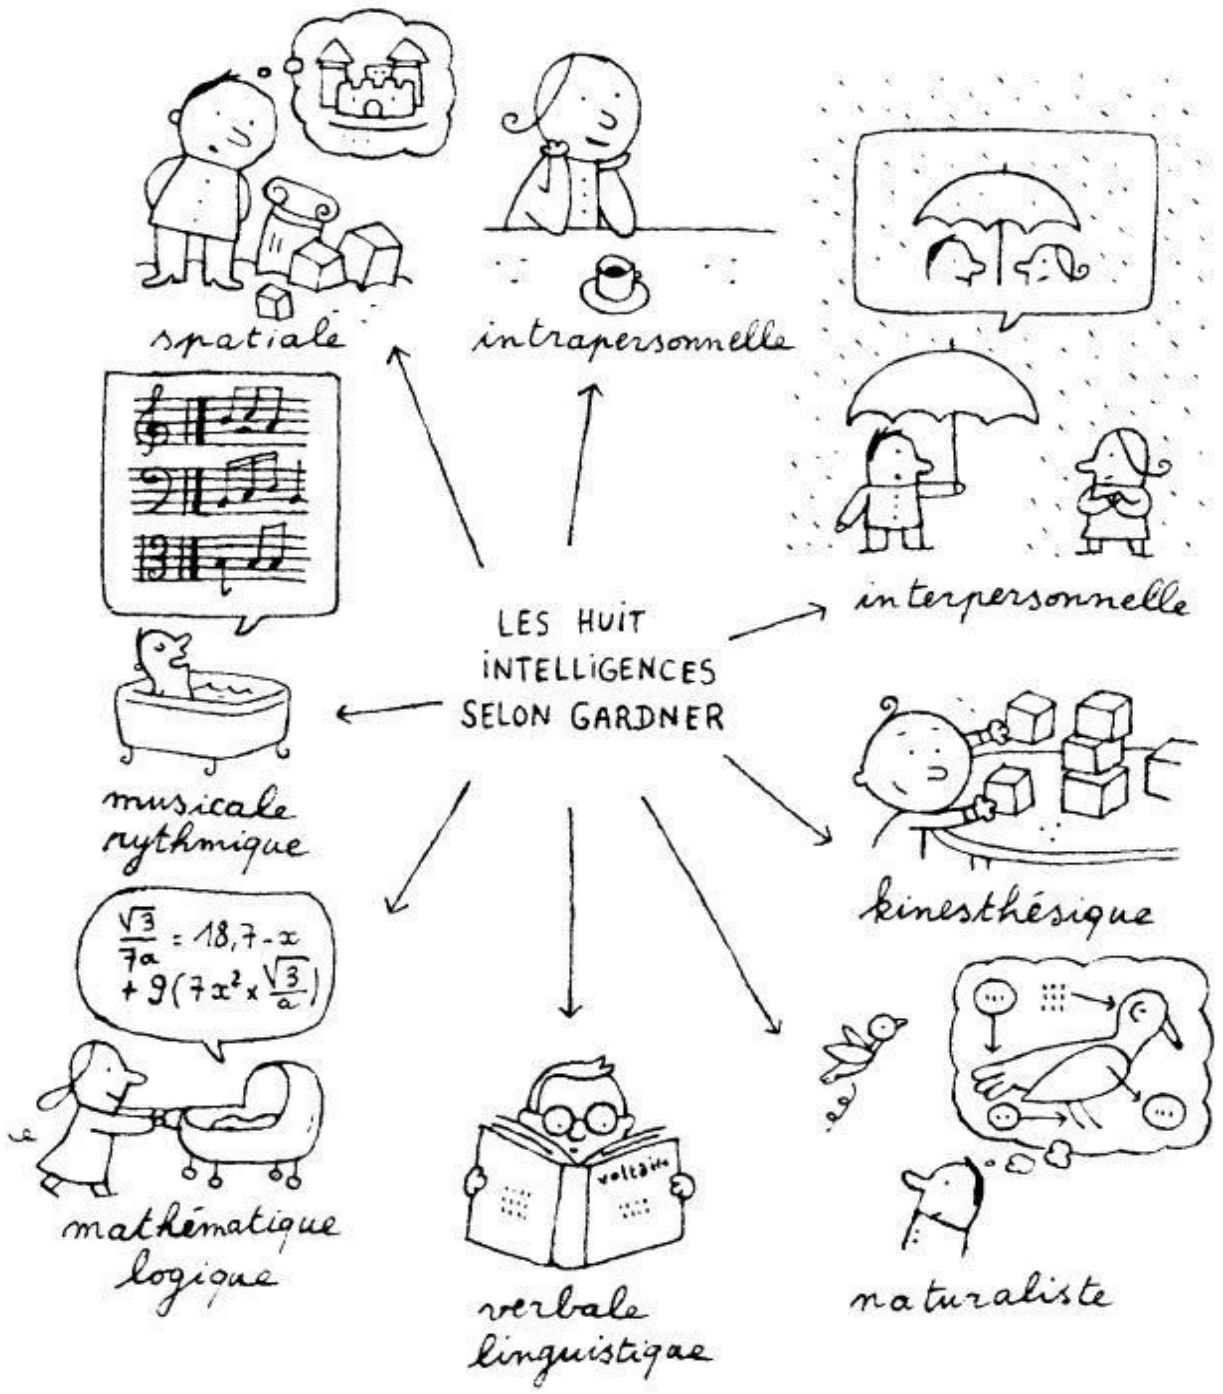 spatiale
intrapersonnelle
interpersonnelle
LES HUIT
INTELLIGENCES
SELON GARDNER
musicale
rythmique
kinesthésique
√3/7a = 18,7 - x
+ 9(7x² × √3/a)
mathématique
logique
voltaire
verbale
linguistique
naturaliste